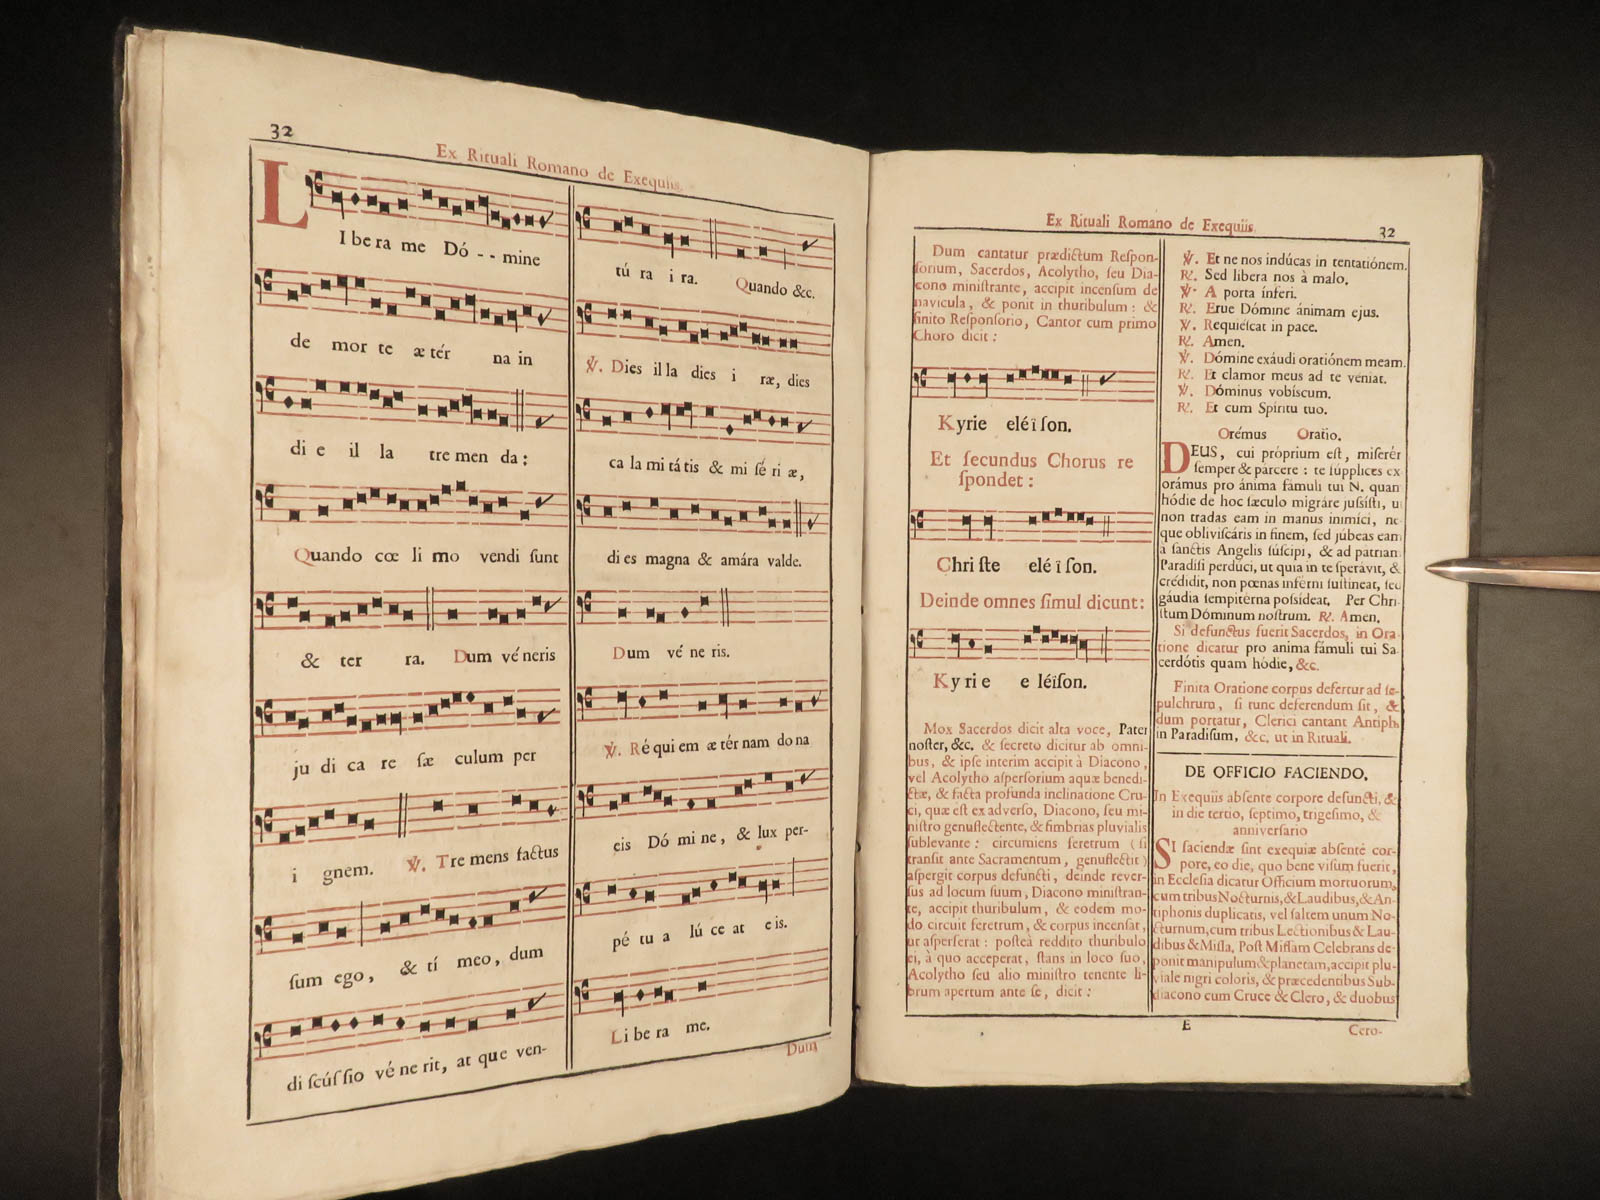 32
Ex Rituali Romano de Exequiis.
LIbera me Dó - - mine
de mor te æ tér na in
di e il la tre men da:
Quando cœ li mo vendi ſunt
& ter ra. Dum vé neris
ju di ca re ſæ culum per
i gnem. ℣. Tre mens factus
ſum ego, & tí meo, dum
di ſcúſ ſio vé ne rit, at que ven-
tú ra i ra. Quando &c.
℣. Dies il la dies i ræ, dies
ca la mi tá tis & mi ſé ri æ,
di es magna & amára valde.
Dum vé ne ris.
℣. Ré qui em æ tér nam do na
eis Dó mi ne, & lux per-
pé tu a lú ce at e is.
Li be ra me.
Dum
Ex Rituali Romano de Exequiis.
32
Dum cantatur prædictum Reſpon-
ſorium, Sacerdos, Acolytho, ſeu Dia-
cono miniſtrante, accipit incenſum de
navicula, & ponit in thuribulum: &
finito Reſponſorio, Cantor cum primo
Choro dicit:
Kyrie eléïſon.
Et ſecundus Chorus re
ſpondet:
Chri ſte elé ï ſon.
Deinde omnes ſimul dicunt:
Ky ri e e léïſon.
Mox Sacerdos dicit alta voce, Pater
noſter, &c. & ſecreto dicitur ab omni-
bus, & ipſe interim accipit à Diacono,
vel Acolytho aſperſorium aquæ benedi-
ctæ, & facta profunda inclinatione Cru-
ci, quæ eſt ex adverſo, Diacono, ſeu mi-
niſtro genuflectente, & fimbrias pluvialis
ſublevante: circumiens feretrum (ſi
tranſit ante Sacramentum, genuflectit)
aſpergit corpus defuncti, deinde rever-
ſus ad locum ſuum, Diacono miniſtran-
te, accipit thuribulum, & eodem mo-
do circuit feretrum, & corpus incenſat,
ut aſperſerat: poſteà reddito thuribulo
ei, à quo acceperat, ſtans in loco ſuo,
Acolytho ſeu alio miniſtro tenente li-
brum apertum ante ſe, dicit:
℣. Et ne nos indúcas in tentatiónem.
℟. Sed libera nos à malo.
℣. A porta ínferi.
℟. Erue Dómine ánimam ejus.
℣. Requiéſcat in pace.
℟. Amen.
℣. Dómine exáudi oratiónem meam.
℟. Et clamor meus ad te véniat.
℣. Dóminus vobíſcum.
℟. Et cum Spíritu tuo.
Orémus Oratio.
DEUS, cui próprium eſt, miſerér
ſemper & párcere: te ſúpplices ex
orámus pro ánima fámuli tui N. quan
hódie de hoc ſæculo migráre juſsíſti, u
non tradas eam in manus inimíci, ne
que obliviſcáris in finem, ſed júbeas eam
à ſanctis Angelis ſúſcipi, & ad patriam
Paradíſi perdúci, ut quia in te ſperávit, &
crédidit, non pœnas inférni ſuſtíneat, ſed
gáudia ſempitérna poſsídeat. Per Chri-
ſtum Dóminum noſtrum. ℟. Amen.
Si defunctus fuerit Sacerdos, in Ora-
tione dicatur pro anima fámuli tui Sa-
cerdótis quam hódie, &c.
Finita Oratione corpus defertur ad ſe-
pulchrum, ſi tunc deferendum ſit, &
dum portatur, Clerici cantant Antiph.
in Paradíſum, &c. ut in Rituali.
DE OFFICIO FACIENDO,
In Exequiis abſente corpore defuncti, &
in die tertio, ſeptimo, trigeſimo, &
anniverſario
SI faciendæ ſint exequiæ abſente cor-
pore, eo die, quo bene viſum fuerit,
in Eccleſia dicatur Officium mortuorum,
cum tribus Nocturnis, & Laudibus, & An-
tiphonis duplicatis, vel ſaltem unum No-
cturnum, cum tribus Lectionibus & Lau-
dibus & Miſſa. Poſt Miſſam Celebrans de-
ponit manipulum & planetam, accipit plu-
viale nigri coloris, & præcedentibus Sub-
diacono cum Cruce & Clero, & duobus
E
Cero-